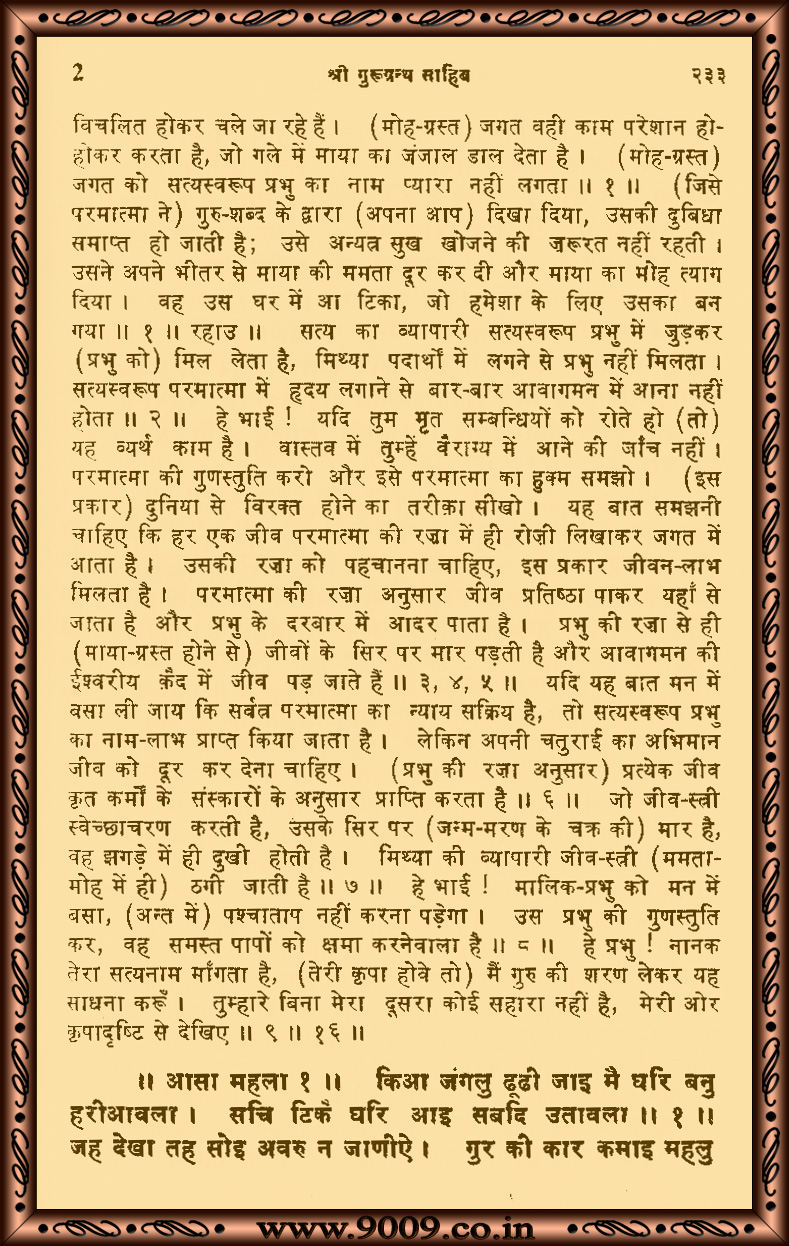 2 श्री गुरूग्रन्थ साहिब २३३
विचलित होकर चले जा रहे हैं। (मोह-ग्रस्त) जगत वही काम परेशान हो-
होकर करता है, जो गले में माया का जंजाल डाल देता है। (मोह-ग्रस्त)
जगत को सत्यस्वरूप प्रभु का नाम प्यारा नहीं लगता ॥ १ ॥ (जिसे
परमात्मा ने) गुरु-शब्द के द्वारा (अपना आप) दिखा दिया, उसकी दुबिधा
समाप्त हो जाती है; उसे अन्यत्र सुख खोजने की ज़रूरत नहीं रहती।
उसने अपने भीतर से माया की ममता दूर कर दी और माया का मोह त्याग
दिया। वह उस घर में आ टिका, जो हमेशा के लिए उसका बन
गया ॥ १ ॥ रहाउ ॥ सत्य का व्यापारी सत्यस्वरूप प्रभु में जुड़कर
(प्रभु को) मिल लेता है, मिथ्या पदार्थों में लगने से प्रभु नहीं मिलता।
सत्यस्वरूप परमात्मा में हृदय लगाने से बार-बार आवागमन में आना नहीं
होता ॥ २ ॥ हे भाई! यदि तुम मृत सम्बन्धियों को रोते हो (तो)
यह व्यर्थ काम है। वास्तव में तुम्हें वैराग्य में आने की जाँच नहीं।
परमात्मा की गुणस्तुति करो और इसे परमात्मा का हुक्म समझो। (इस
प्रकार) दुनिया से विरक्त होने का तरीक़ा सीखो। यह बात समझनी
चाहिए कि हर एक जीव परमात्मा की रज़ा में ही रोज़ी लिखाकर जगत में
आता है। उसकी रज़ा को पहचानना चाहिए, इस प्रकार जीवन-लाभ
मिलता है। परमात्मा की रज़ा अनुसार जीव प्रतिष्ठा पाकर यहाँ से
जाता है और प्रभु के दरबार में आदर पाता है। प्रभु की रज़ा से ही
(माया-ग्रस्त होने से) जीवों के सिर पर मार पड़ती है और आवागमन की
ईश्वरीय क़ैद में जीव पड़ जाते हैं ॥ ३, ४, ५ ॥ यदि यह बात मन में
बसा ली जाय कि सर्वत्र परमात्मा का न्याय सक्रिय है, तो सत्यस्वरूप प्रभु
का नाम-लाभ प्राप्त किया जाता है। लेकिन अपनी चतुराई का अभिमान
जीव को दूर कर देना चाहिए। (प्रभु की रज़ा अनुसार) प्रत्येक जीव
कृत कर्मों के संस्कारों के अनुसार प्राप्ति करता है ॥ ६ ॥ जो जीव-स्त्री
स्वेच्छाचरण करती है, उसके सिर पर (जन्म-मरण के चक्र की) मार है,
वह झगड़े में ही दुखी होती है। मिथ्या की व्यापारी जीव-स्त्री (ममता-
मोह में ही) ठगी जाती है ॥ ७ ॥ हे भाई! मालिक-प्रभु को मन में
बसा, (अन्त में) पश्चाताप नहीं करना पड़ेगा। उस प्रभु की गुणस्तुति
कर, वह समस्त पापों को क्षमा करनेवाला है ॥ ८ ॥ हे प्रभु! नानक
तेरा सत्यनाम माँगता है, (तेरी कृपा होवे तो) मैं गुरु की शरण लेकर यह
साधना करूँ। तुम्हारे बिना मेरा दूसरा कोई सहारा नहीं है, मेरी ओर
कृपादृष्टि से देखिए ॥ ९ ॥ १६ ॥
॥ आसा महला १ ॥ किआ जंगलु ढूढी जाइ मै घरि बनु
हरीआवला। सचि टिकै घरि आइ सबदि उतावला ॥ १ ॥
जह देखा तह सोइ अवरु न जाणीऐ। गुर की कार कमाइ महलु
www.9009.co.in